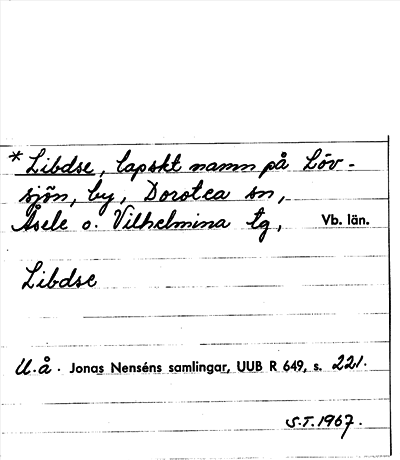 * Libdse, lapskt namn på Löv-
sjön, by, Dorotea sn,
Åsele o. Vilhelmina tg, Vb. län.
Libdse
U.å. Jonas Nenséns samlingar, UUB R 649, s. 221.
S.T. 1967.